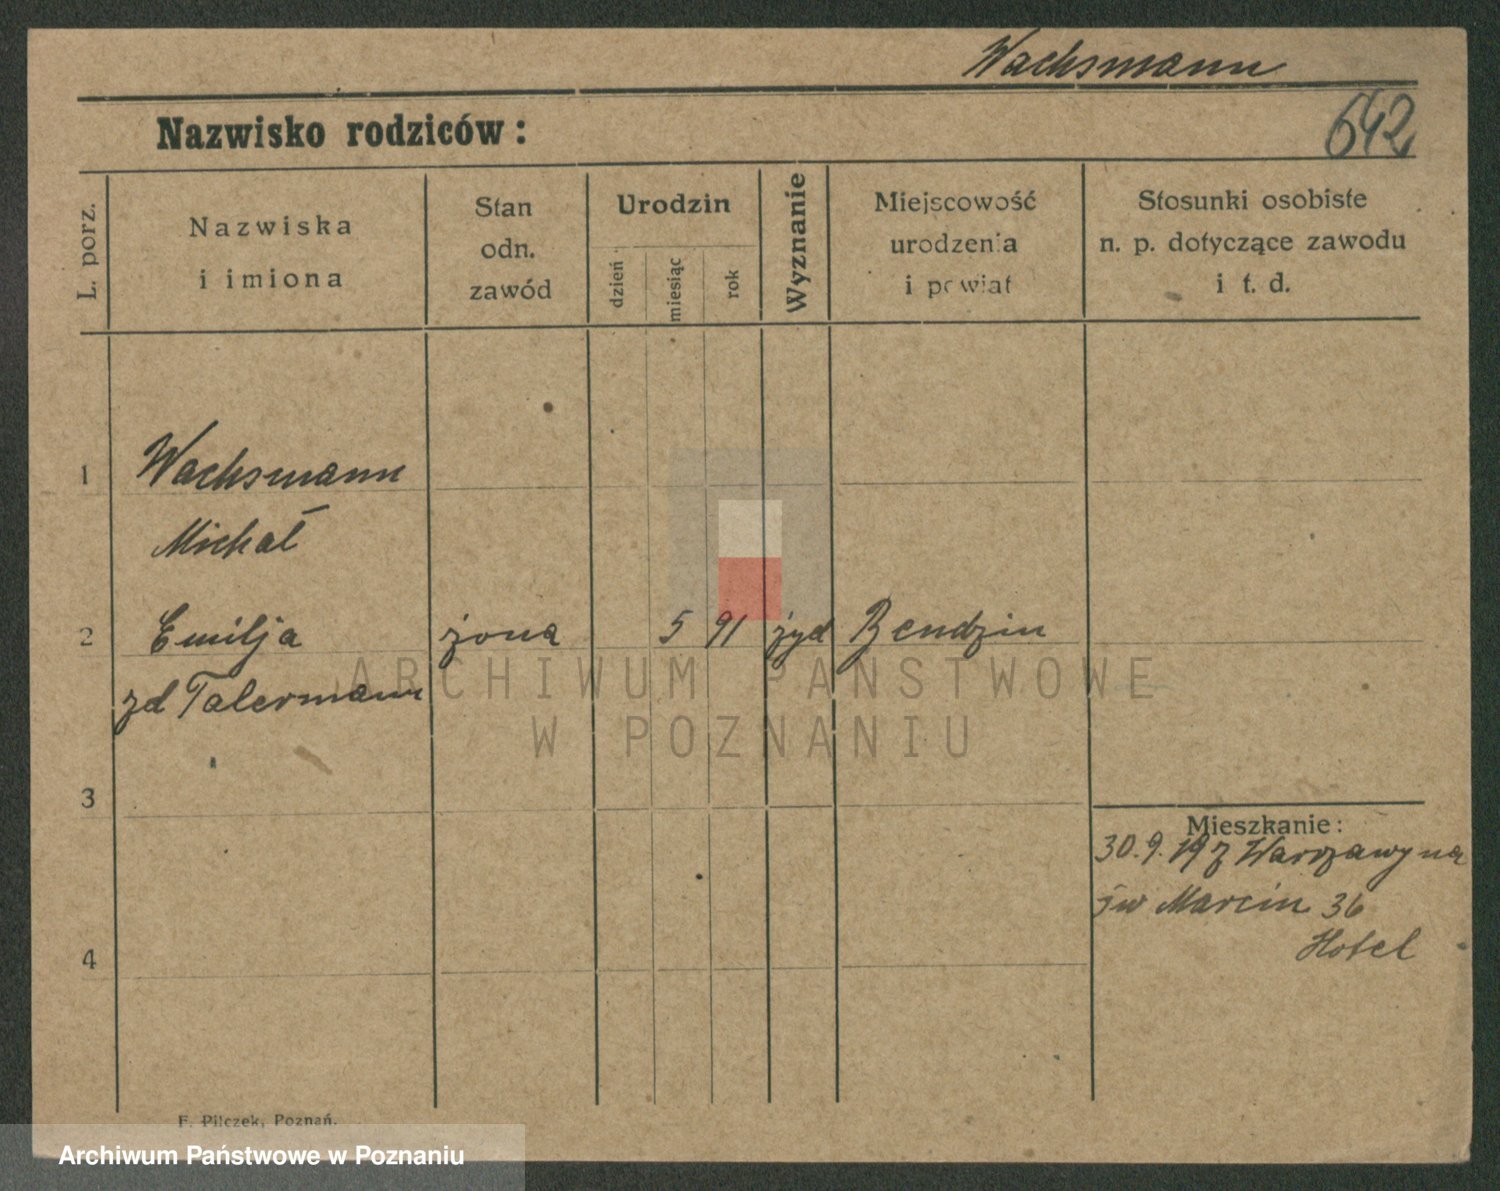 Wachsmann
Nazwisko rodziców:
642
L. porz.
Nazwiska
i imiona
Stan
odn.
zawód
Urodzin
dzień
miesiąc
rok
Wyznanie
Miejscowość
urodzenia
i powiat
Stosunki osobiste
n. p. dotyczące zawodu
i t. d.
1
Wachsmann
Michał
2
Emilja żona 5 91 żyd Bendzin
zd Talermann
3
Mieszkanie:
30.9.19 z Warszawy na
św Marcin 36
Hotel
4
F. Pilczek, Poznań.
ARCHIWUM PAŃSTWOWE
W POZNANIU
Archiwum Państwowe w Poznaniu